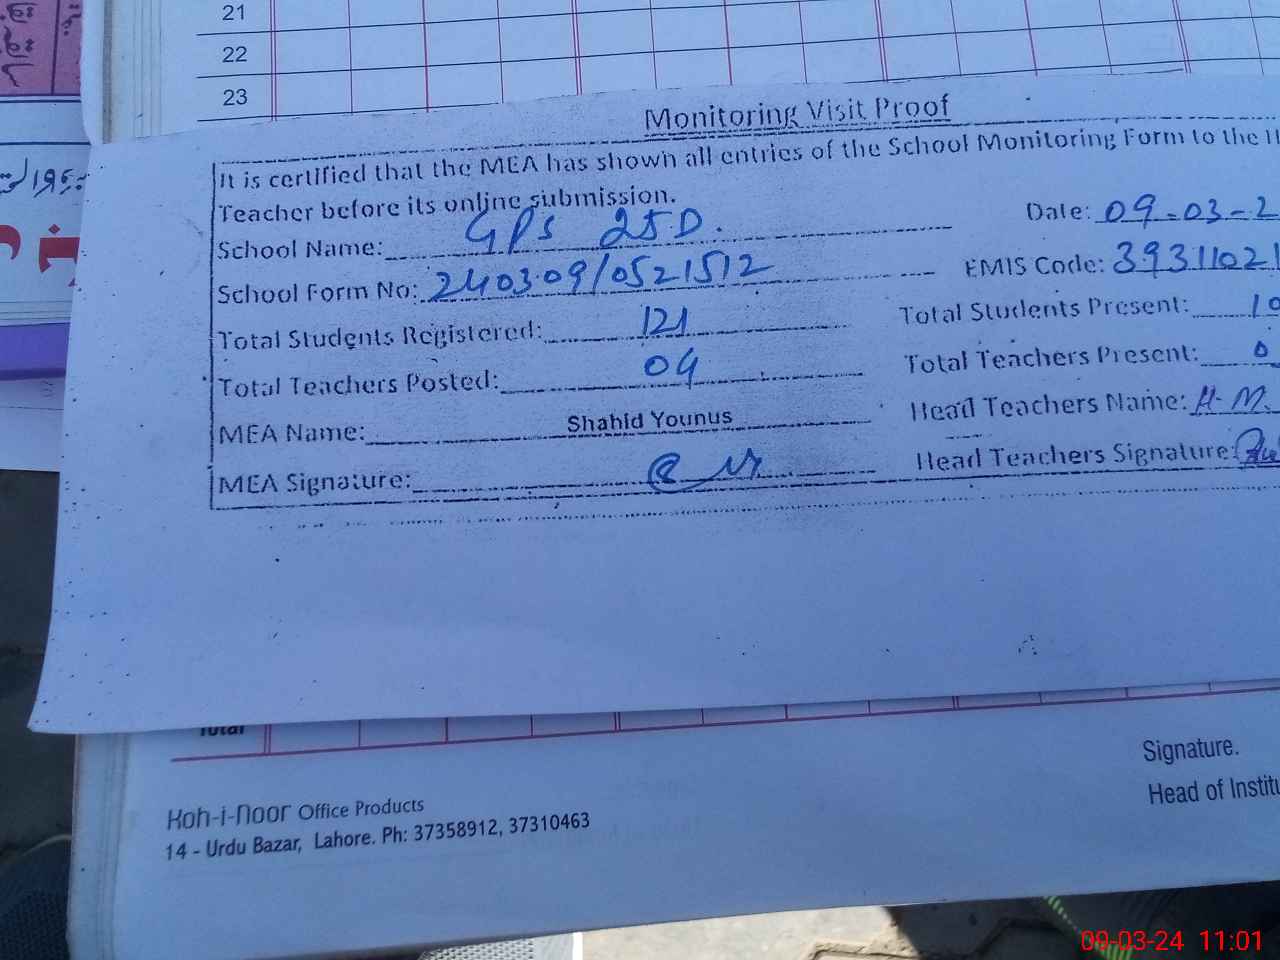 21
22
23
Monitoring Visit Proof
It is certified that the MEA has shown all entries of the School Monitoring Form to the
Teacher before its online submission.
School Name: GPS 25D.
Date: 09-03-2
School Form No: 240309/0521512
EMIS Code: 39311021
Total Students Registered: 121
Total Students Present: 10
Total Teachers Posted: 04
Total Teachers Present: 0
MEA Name: Shahid Younus
Head Teachers Name: H.M.
MEA Signature:
Head Teachers Signature:
Total
Signature.
Head of Institu
Koh-i-Noor Office Products
14 - Urdu Bazar, Lahore. Ph: 37358912, 37310463
09-03-24 11:01